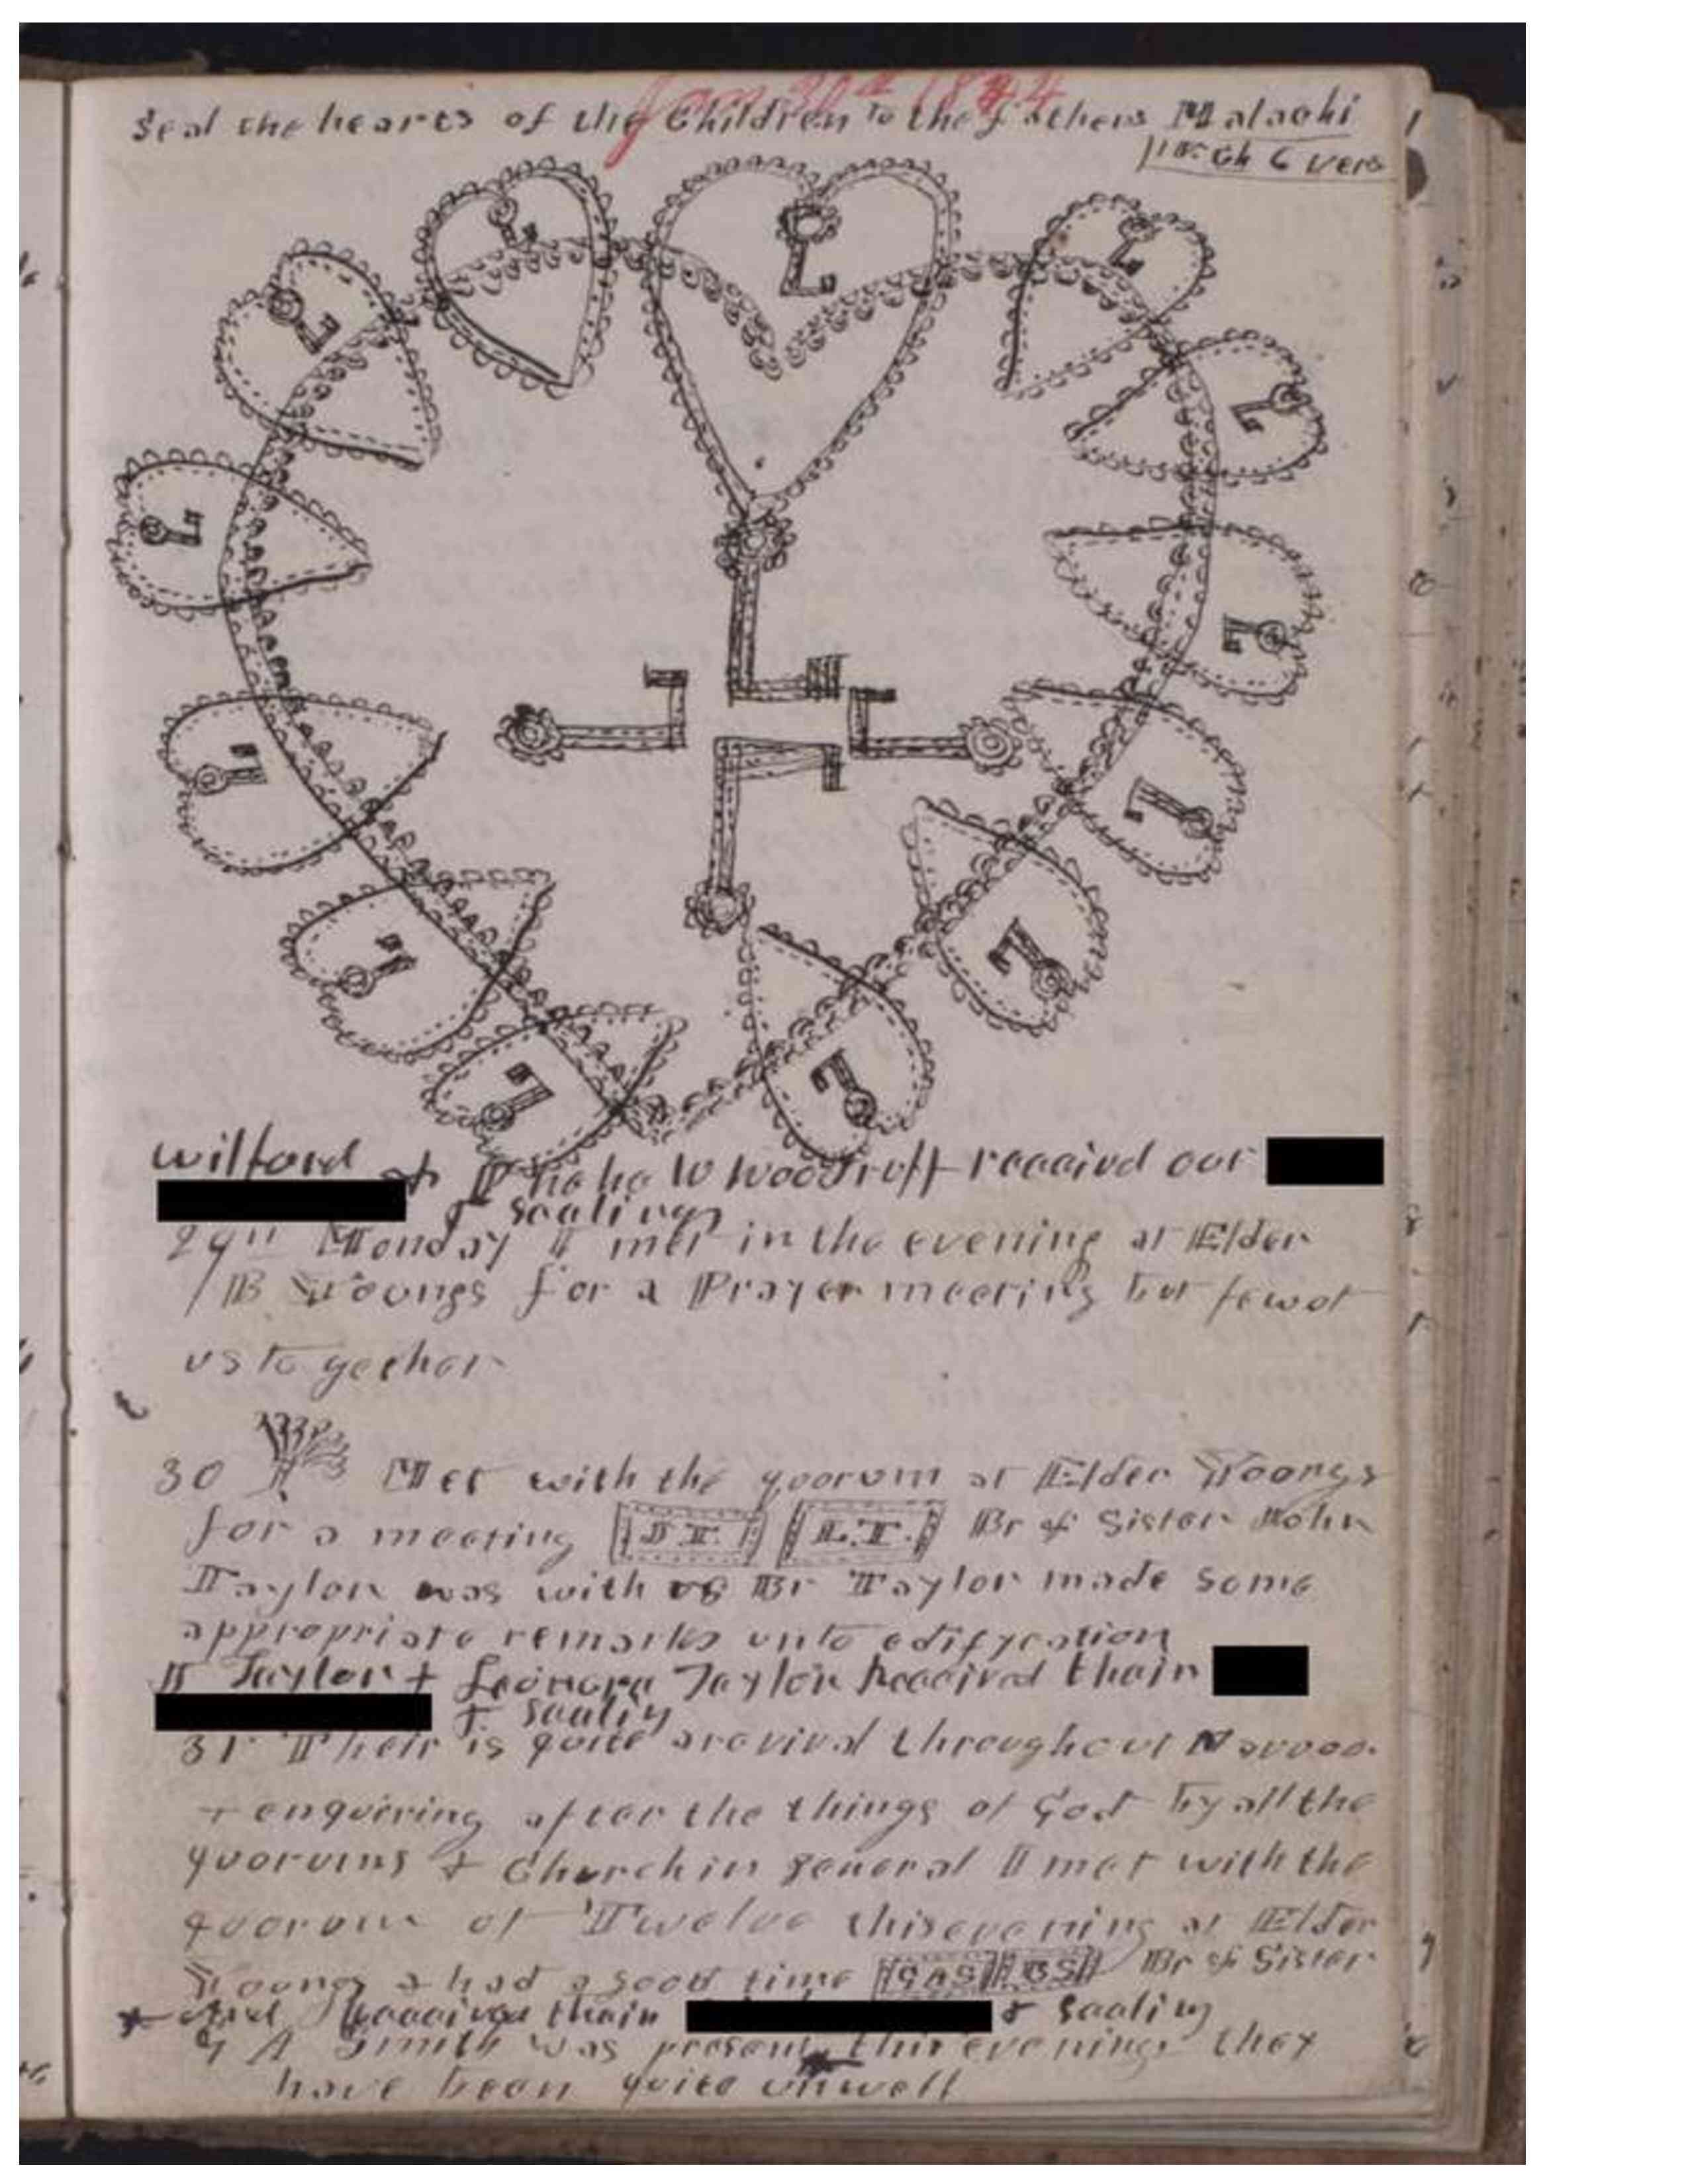 Jan 30th 1844
Seal the hearts of the Children to the fathers Malachi
Ch 6 vers
Wilford & Phebe W Woodruff recaaivd our
& Sealings
29th Monday I met in the evening at Elder
B Youngs for a Prayer meeting but few of
us together
30 Met with the quorum at Elder Youngs
for a meeting J T. L. T. Br & Sister John
Taylor was with us Br Taylor made some
appropriate remarks unto edifycation
J Taylor & Leonora Taylor Received thair
& Sealing
31st Their is quite a revival throughout Nauvoo.
& enquiring after the things of God by all the
quorums & Church in general I met with the
quorum of Twelve this evening at Elder
Youngs & had a good time GAS BS Br & Sister
And thair & Sealing
G A Smith was present this evening they
have been quite unwell